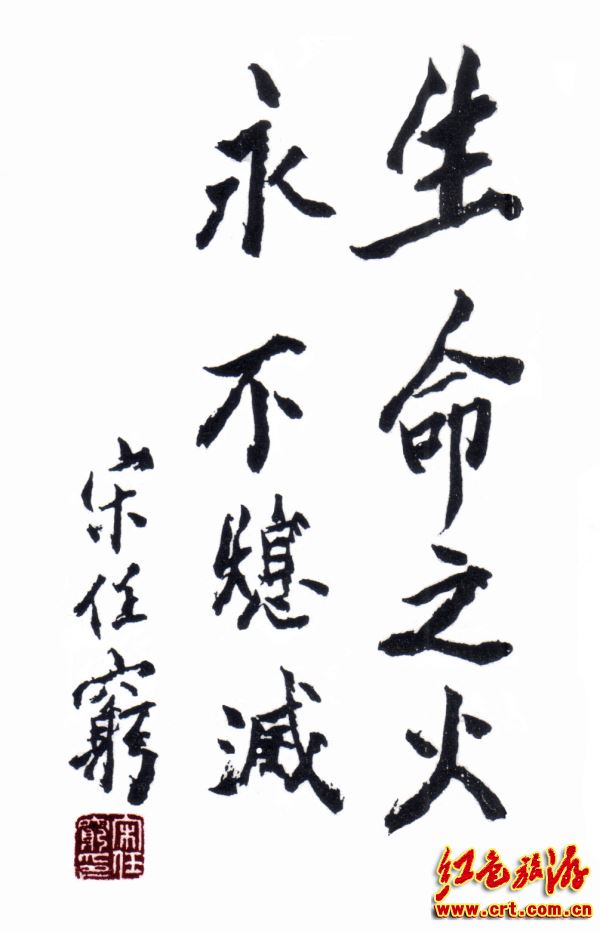 生命之火
永不熄減
宋任窮
宋任窮印
红色旅游
www.crt.com.cn